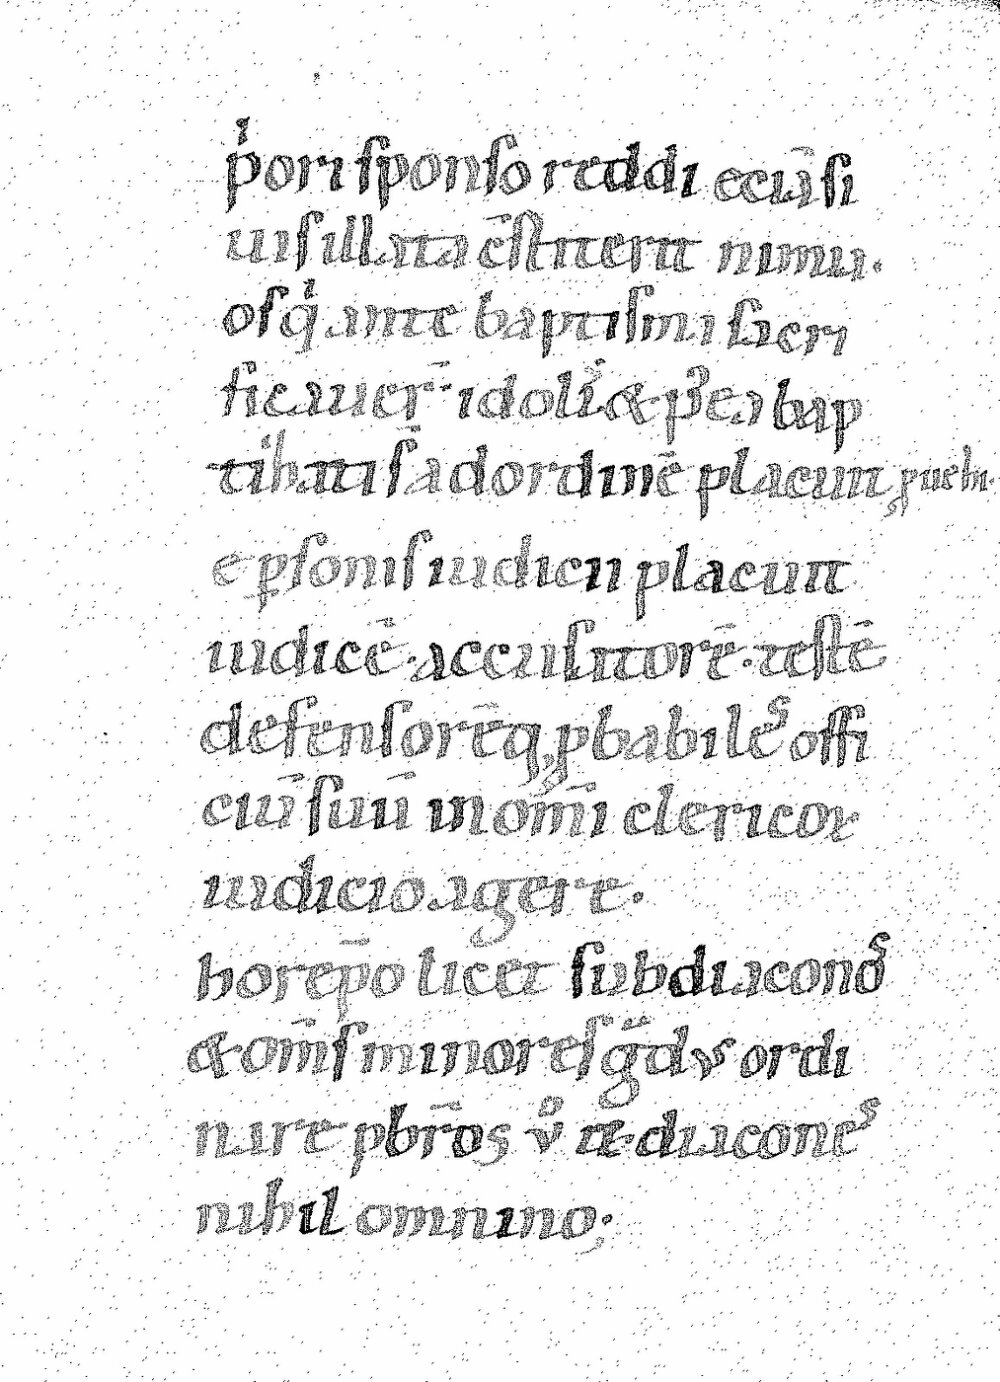 pͥori sponso reddi eciā si
uis illata c̄stiterit nimia.
os qͥ ante baptisma sacri
ficauer̄ idolis & p᷒ ea bap
tizatis ad ordinē placuit ꝓuehi.
e ꝑsonis iudicii placuit
iudicē. accusatorē. testē
defensorēq; ꝓbabiles offi
ciū suū in om̄i clericoꝝ
iudicio agere.
horep̄o licet subdiaconos
& om̄s minores gᵃdus ordi
nare pbr̄os uͦ ut diacones
nihil omnino;